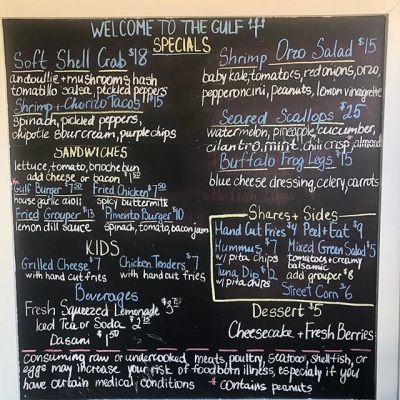 WELCOME TO THE GULF
SPECIALS
Soft Shell Crab $18
andouille + mushrooms hash
tomatillo salsa, pickled peppers
Shrimp + Chorizo Tacos $15
spinach, pickled peppers,
chipotle sour cream, purple chips
Shrimp Orzo Salad $15
baby kale, tomatoes, red onions, orzo,
pepperoncini, peanuts, lemon vinagrette
Seared Scallops $25
watermelon, pineapple, cucumber,
cilantro, mint, chili crisp, almond
Buffalo Frog Legs $15
blue cheese dressing, celery, carrots
SANDWICHES
lettuce, tomato, brioche bun
add cheese or bacon $1.50
*Gulf Burger $7.50 Fried Chicken $7.50
house garlic aioli spicy buttermilk
Fried Grouper $13 Pimento Burger $10
lemon dill sauce spinach, tomato bacon jam
KIDS
Grilled Cheese $7 Chicken Tenders $7
with hand cut fries with hand cut fries
Beverages
Fresh Squeezed Lemonade
Iced Tea or Soda
Dasani $1.50
Shares + Sides
Hand Cut Fries $4 Peel + Eat $9
Hummus $7 Mixed Green Salad $5
w/ pita chips tomatoes + creamy
balsamic
Tuna Dip $12 add grouper $6
w/ pita chips Street Corn $6
Dessert $5
Cheesecake + Fresh Berries
consuming raw or undercooked meats, poultry, seafood, shellfish, or
eggs may increase your risk of foodborn illness, especialy if you
have certain medical conditions * contains peanuts